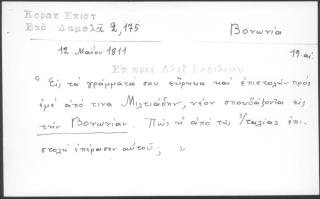 Κοραη Επιστ
Εκδ Δαμαλᾶ 2,175
Βονωνία
12 Μαΐου 1811
19. αἰ
Επ προς Αλεξ Βασιλειου
" Εἰς τὰ γράμματά σου εὕρηκα καὶ ἐπιστολὴν πρὸς
ἐμὲ ἀπό τινα Μιλτιάδην, νέον σπουδάζοντα εἰς
τὴν Βονωνίαν. Πῶς ἡ ἀπὸ τῆς Ἰταλίας ἐπι-
στολὴ ἐπέρασεν αὐτοῦ; "